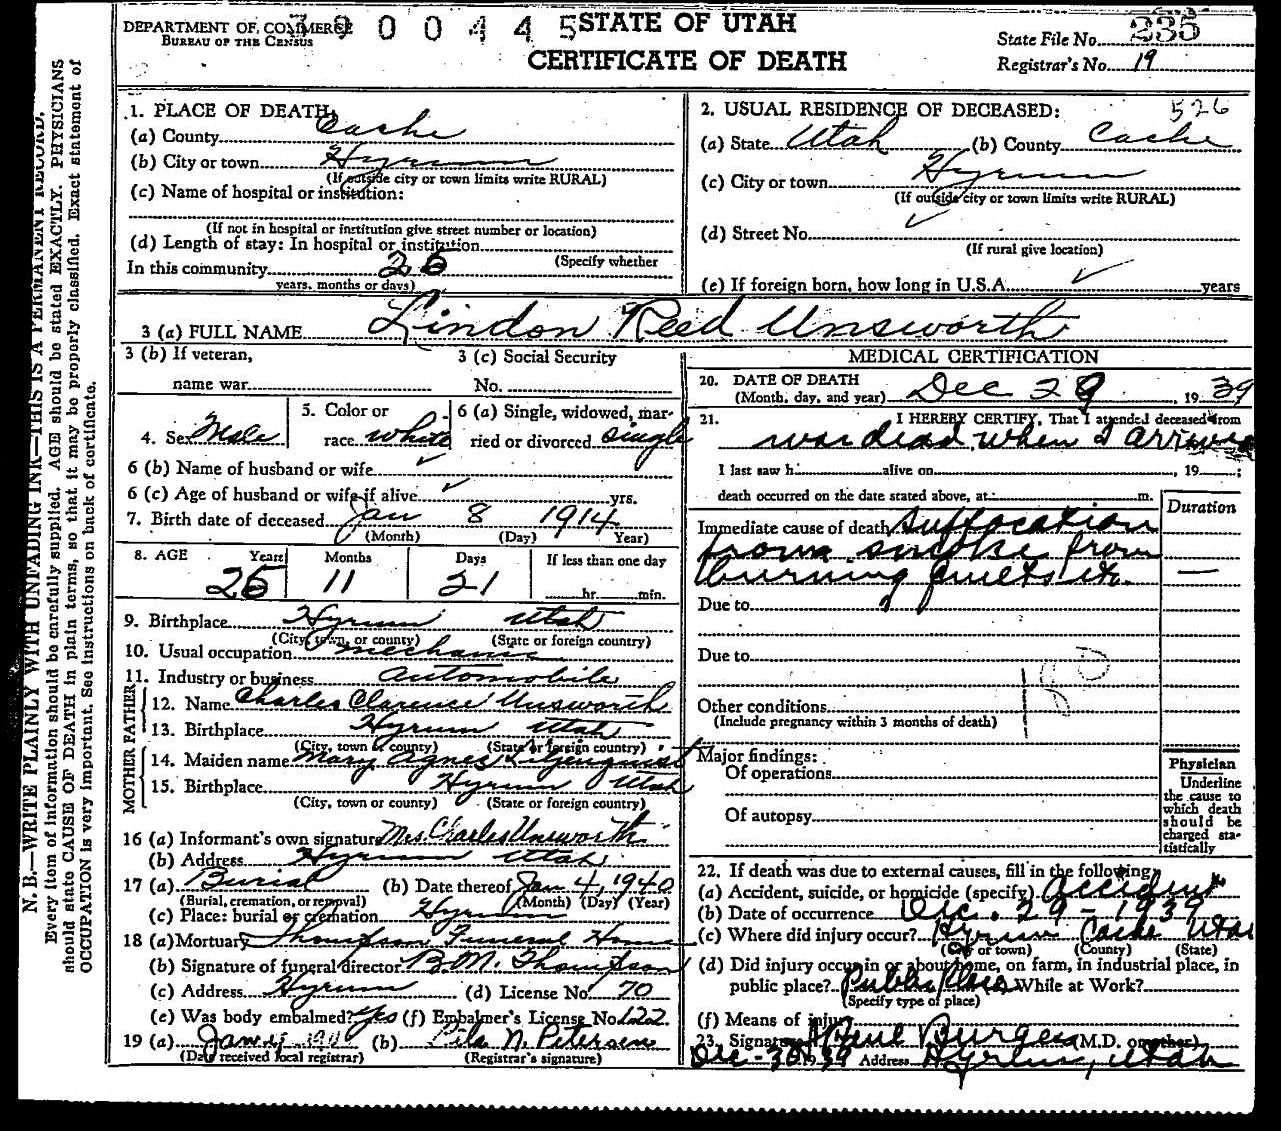 DEPARTMENT OF COMMERCE
BUREAU OF THE CENSUS
3900445
STATE OF UTAH
CERTIFICATE OF DEATH
State File No. 235
Registrar's No. 19
N. B.—WRITE PLAINLY WITH UNFADING INK—THIS IS A PERMANENT RECORD.
Every item of information should be carefully supplied. AGE should be stated EXACTLY. PHYSICIANS
should state CAUSE OF DEATH in plain terms, so that it may be properly classified. Exact statement of
OCCUPATION is very important. See instructions on back of certificate.
1. PLACE OF DEATH:
(a) County Cache
(b) City or town Hyrum
(If outside city or town limits write RURAL)
(c) Name of hospital or institution:
(If not in hospital or institution give street number or location)
(d) Length of stay: In hospital or institution
(Specify whether
In this community
years, months or days)
2. USUAL RESIDENCE OF DECEASED: 526
(a) State Utah (b) County Cache
(c) City or town Hyrum
(If outside city or town limits write RURAL)
(d) Street No.
(If rural give location)
(e) If foreign born, how long in U.S.A. years
3 (a) FULL NAME Lindon Reed Unsworth
3 (b) If veteran,
name war
3 (c) Social Security
No.
4. Sex Male
5. Color or
race white
6 (a) Single, widowed, mar-
ried or divorced single
6 (b) Name of husband or wife
6 (c) Age of husband or wife if alive yrs.
7. Birth date of deceased Jan 8 1914
(Month) (Day) Year)
8. AGE Years Months Days If less than one day
25 11 21 hr. min.
9. Birthplace Hyrum Utah
(City, town, or county) (State or foreign country)
10. Usual occupation mechanic
11. Industry or business Automobile
FATHER
12. Name Charles Clarence Unsworth
13. Birthplace Hyrum Utah
(City, town or county) (State or foreign country)
MOTHER
14. Maiden name Mary Agnes Liljenquist
15. Birthplace Hyrum Utah
(City, town or county) (State or foreign country)
16 (a) Informant's own signature Mrs. Charles Unsworth
(b) Address Hyrum Utah
17 (a) Burial (b) Date thereof Jan 4, 1940
(Burial, cremation, or removal) (Month) (Day) (Year)
(c) Place: burial or cremation Hyrum
18 (a) Mortuary Thompson Funeral Home
(b) Signature of funeral director B. M. Thompson
(c) Address Hyrum (d) License No. 70
(e) Was body embalmed? Yes (f) Embalmer's License No. 122
19 (a) Jan (b) N. Petersen
(Date received local registrar) (Registrar's signature)
MEDICAL CERTIFICATION
20. DATE OF DEATH
(Month, day, and year) Dec 29, 1939
21. I HEREBY CERTIFY, That I attended deceased from
was dead when I arrived
I last saw h alive on , 19 ;
death occurred on the date stated above, at m.
Duration
Immediate cause of death Suffocation
from smoke from
burning quilts etc. —
Due to
Due to
180
Other conditions
(Include pregnancy within 3 months of death)
Major findings:
Of operations
Of autopsy
Physician
Underline
the cause to
which death
should be
charged sta-
tistically
22. If death was due to external causes, fill in the following:
(a) Accident, suicide, or homicide (specify) Accident
(b) Date of occurrence Dec. 29 - 1939
(c) Where did injury occur? Hyrum Cache Utah
(City or town) (County) (State)
(d) Did injury occur in or about home, on farm, in industrial place, in
public place? Public Place While at Work?
(Specify type of place)
(f) Means of injury
23. Signature Burgess (M.D. or other)
Dec - 30, 39 Address Hyrum, Utah